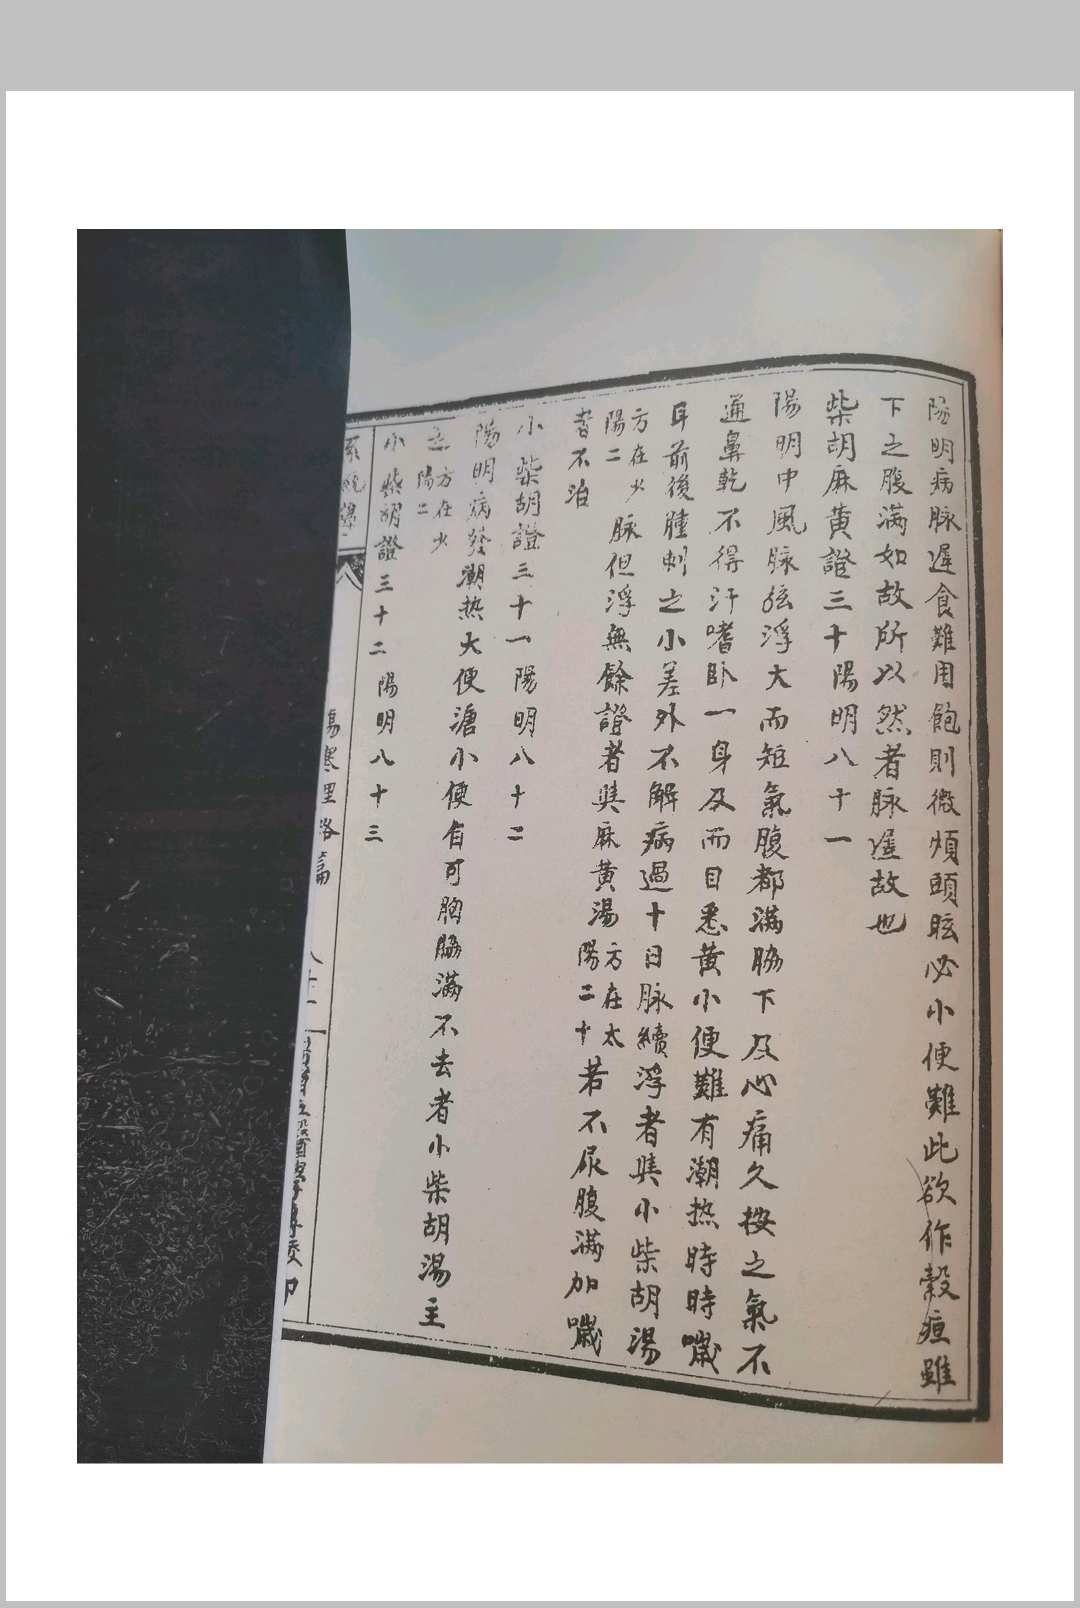 陽明病脉遲食難用飽則微煩頭眩必小便難此欲作穀疸雖
下之腹滿如故所以然者脉遲故也
柴胡麻黄證三十陽明八十一
陽明中風脉弦浮大而短氣腹都滿脇下及心痛久按之氣不
通鼻乾不得汗嗜卧一身及面目悉黄小便難有潮热時時噦
耳前後腫刺之小差外不解病過十日脉續浮者與小柴胡湯
方在火陽二脉但浮無餘證者與麻黄湯方在太陽二十若不尿腹滿加噦
者不治
小柴胡證三十一陽明八十二
陽明病發潮热大便溏小便自可胸脇滿不去者小柴胡湯主
之方在火陽二
小柴胡證三十二陽明八十三
傷寒理路篇